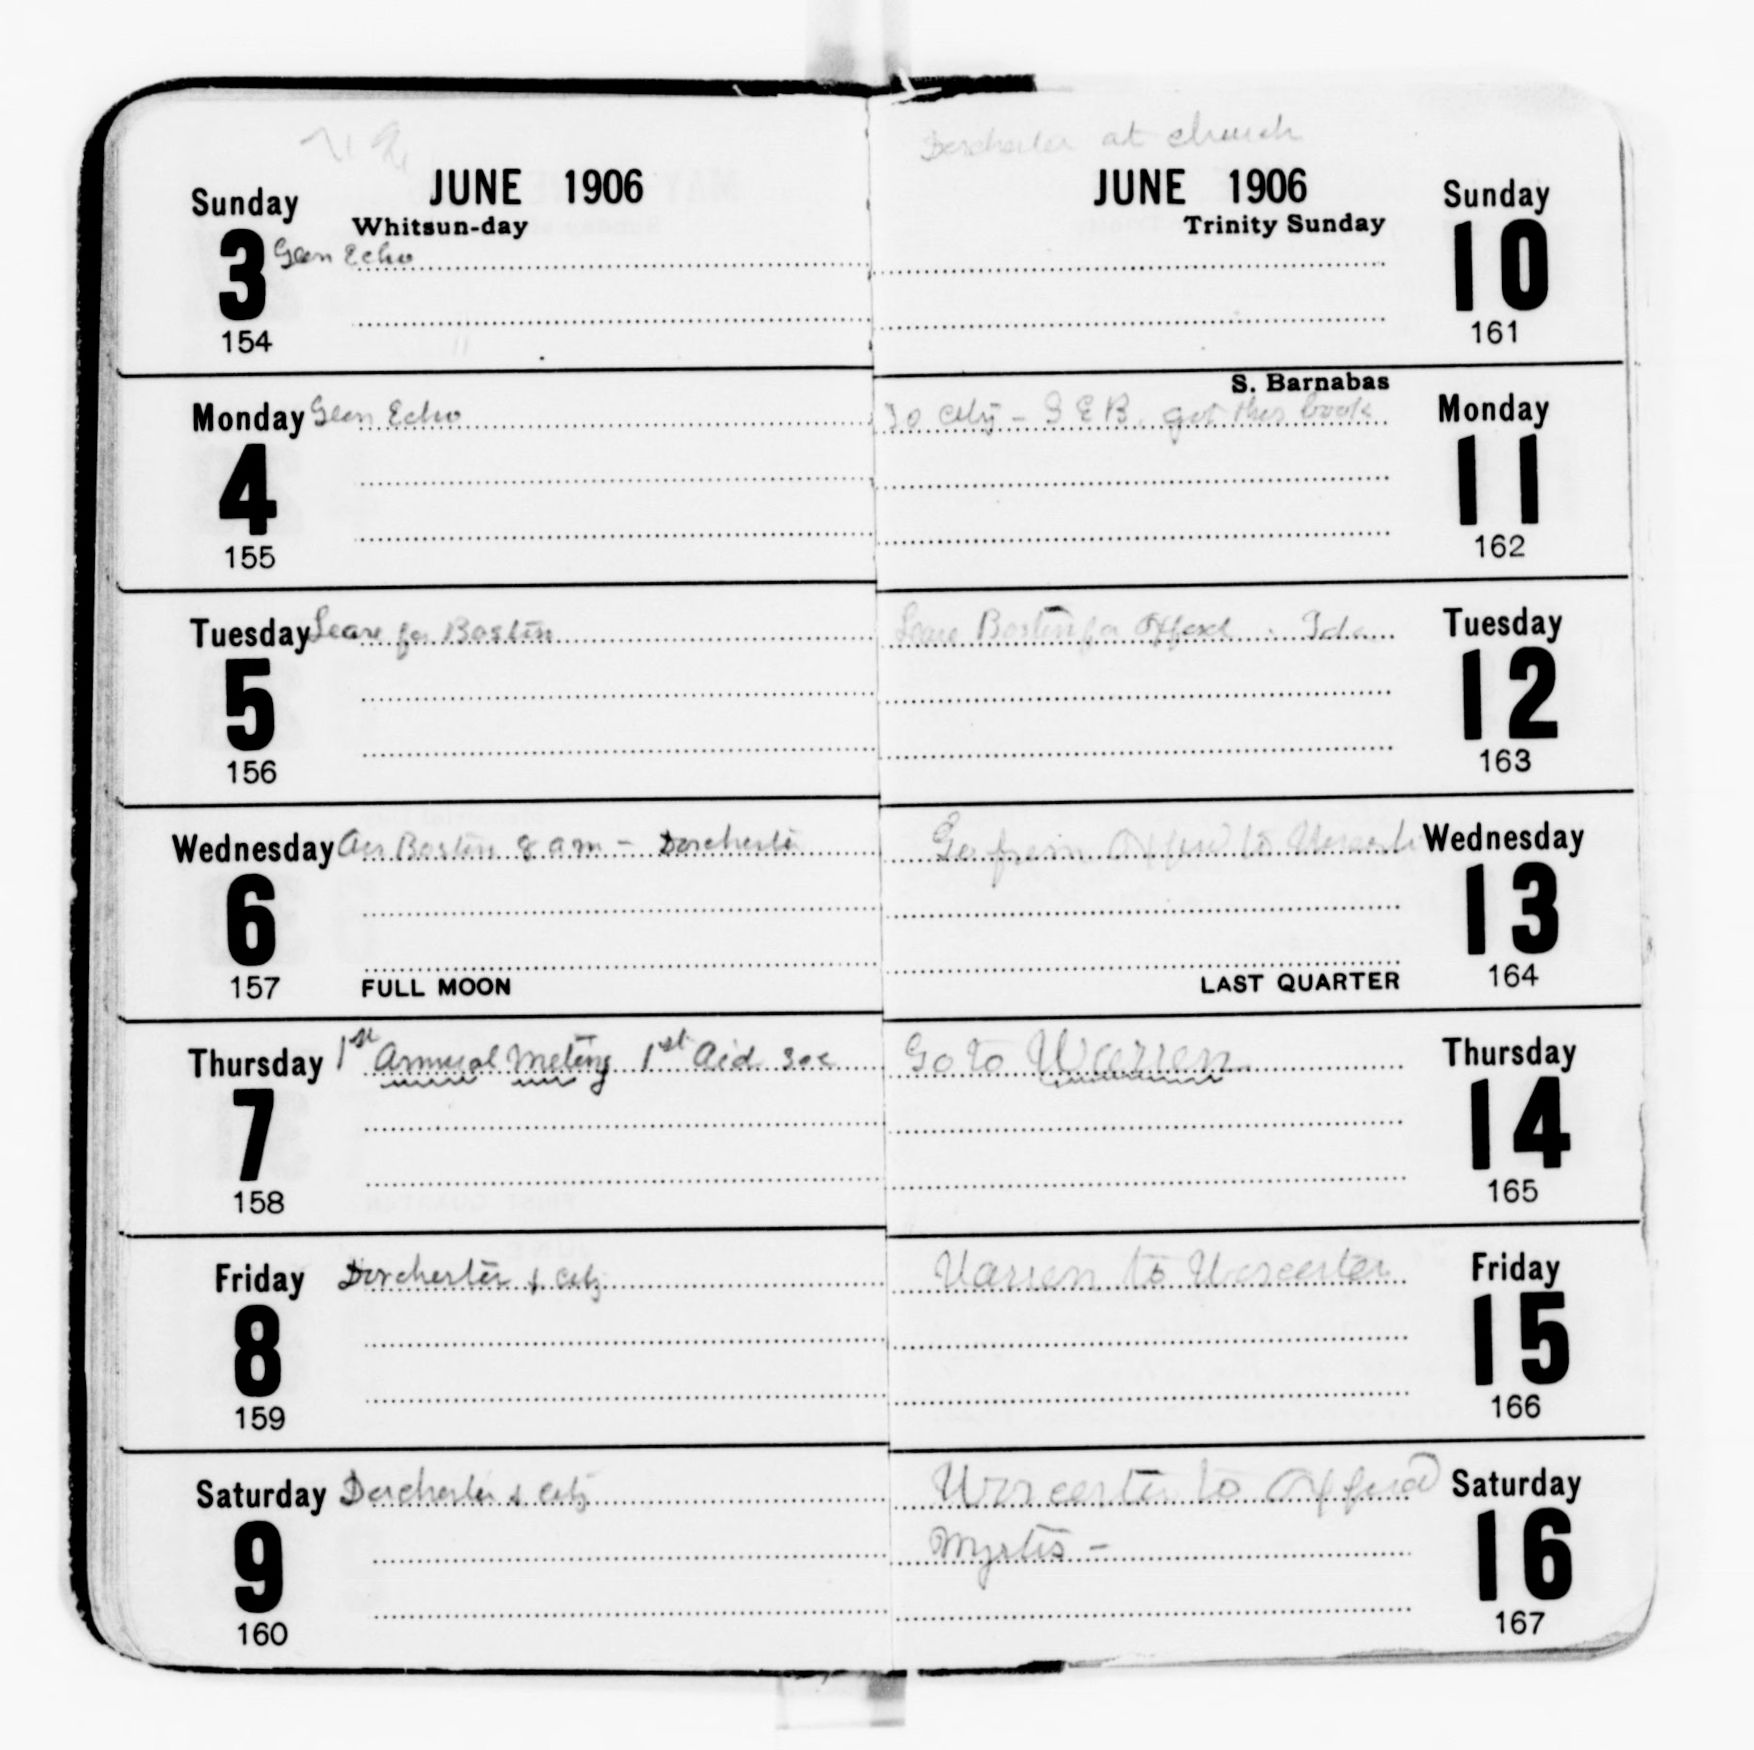 JUNE 1906
Sunday
Whitsun-day
3 Glen Echo
154
Monday Glen Echo
4
155
Tuesday Leave for Boston
5
156
Wednesday Arr Boston 8 am - Dorchester
6
157 FULL MOON
Thursday 1st Annual Meting 1st Aid Soc
7
158
Friday Dorchester & city
8
159
Saturday Dorchester & city
9
160
Dorchester at church
JUNE 1906 Sunday
Trinity Sunday
10
161
S. Barnabas
To city - I E B. got this book Monday
11
162
Leave Boston for Oxford. Ida Tuesday
12
163
Go from Oxford to Worcester Wednesday
13
LAST QUARTER 164
Go to Warren Thursday
14
165
Warren to Worcester Friday
15
166
Worcester to Oxford Saturday
Myrtis -
16
167